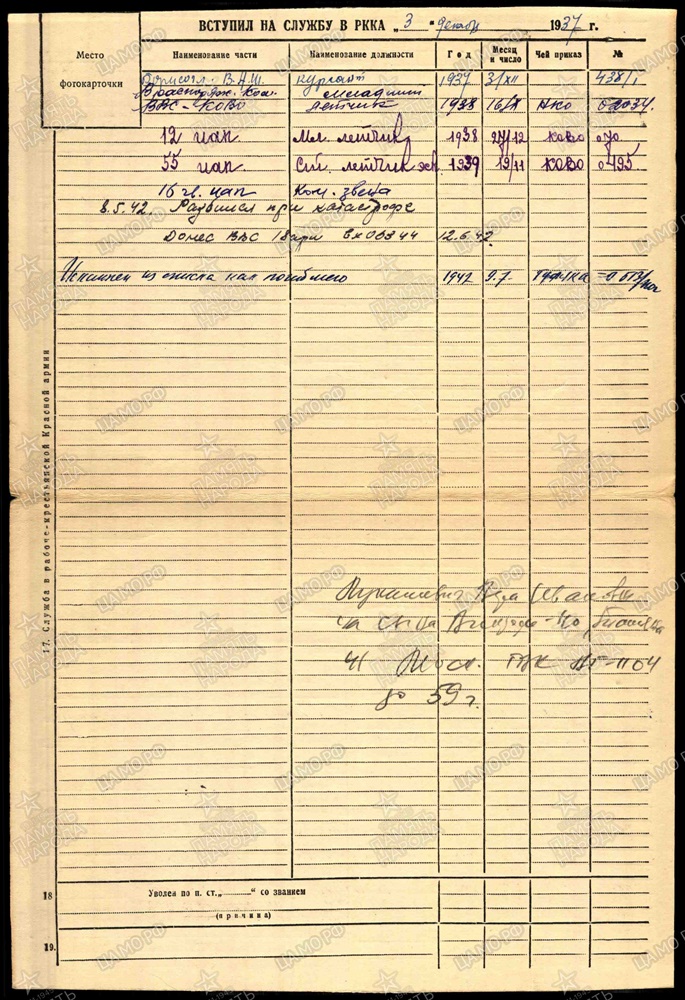 ВСТУПИЛ НА СЛУЖБУ В РККА „ 3 " декабр 1937 г.
Место фотокарточки
Наименование части Наименование должности Год Месяц и число Чей приказ №
Борисогл. В.А.Ш. курсант 1937 3/XII 438/1
В распоряж. Ком. младший
ВВС-КОВО летчик 1938 16/X НКО 02034
12 иап Мл. летчик 1938 27/12 КОВО 070
55 иап Ст. летчик эск 1939 19/11 КОВО 0495
16 гв. иап Ком. звена
8.5.42. Разбился при катастрофе
Донес ВВС 18арм Вх 00344 12.6.42
Исключен из списка как погибшего 1942 9.7.
17. Служба в рабоче-крестьянской Красной армии
на сына
Моск. ГВК
до 59 г.
18 Уволен по п. ст. „ " со званием
(причина)
19.
ЦАМО РФ
ПАМЯТЬ НАРОДА